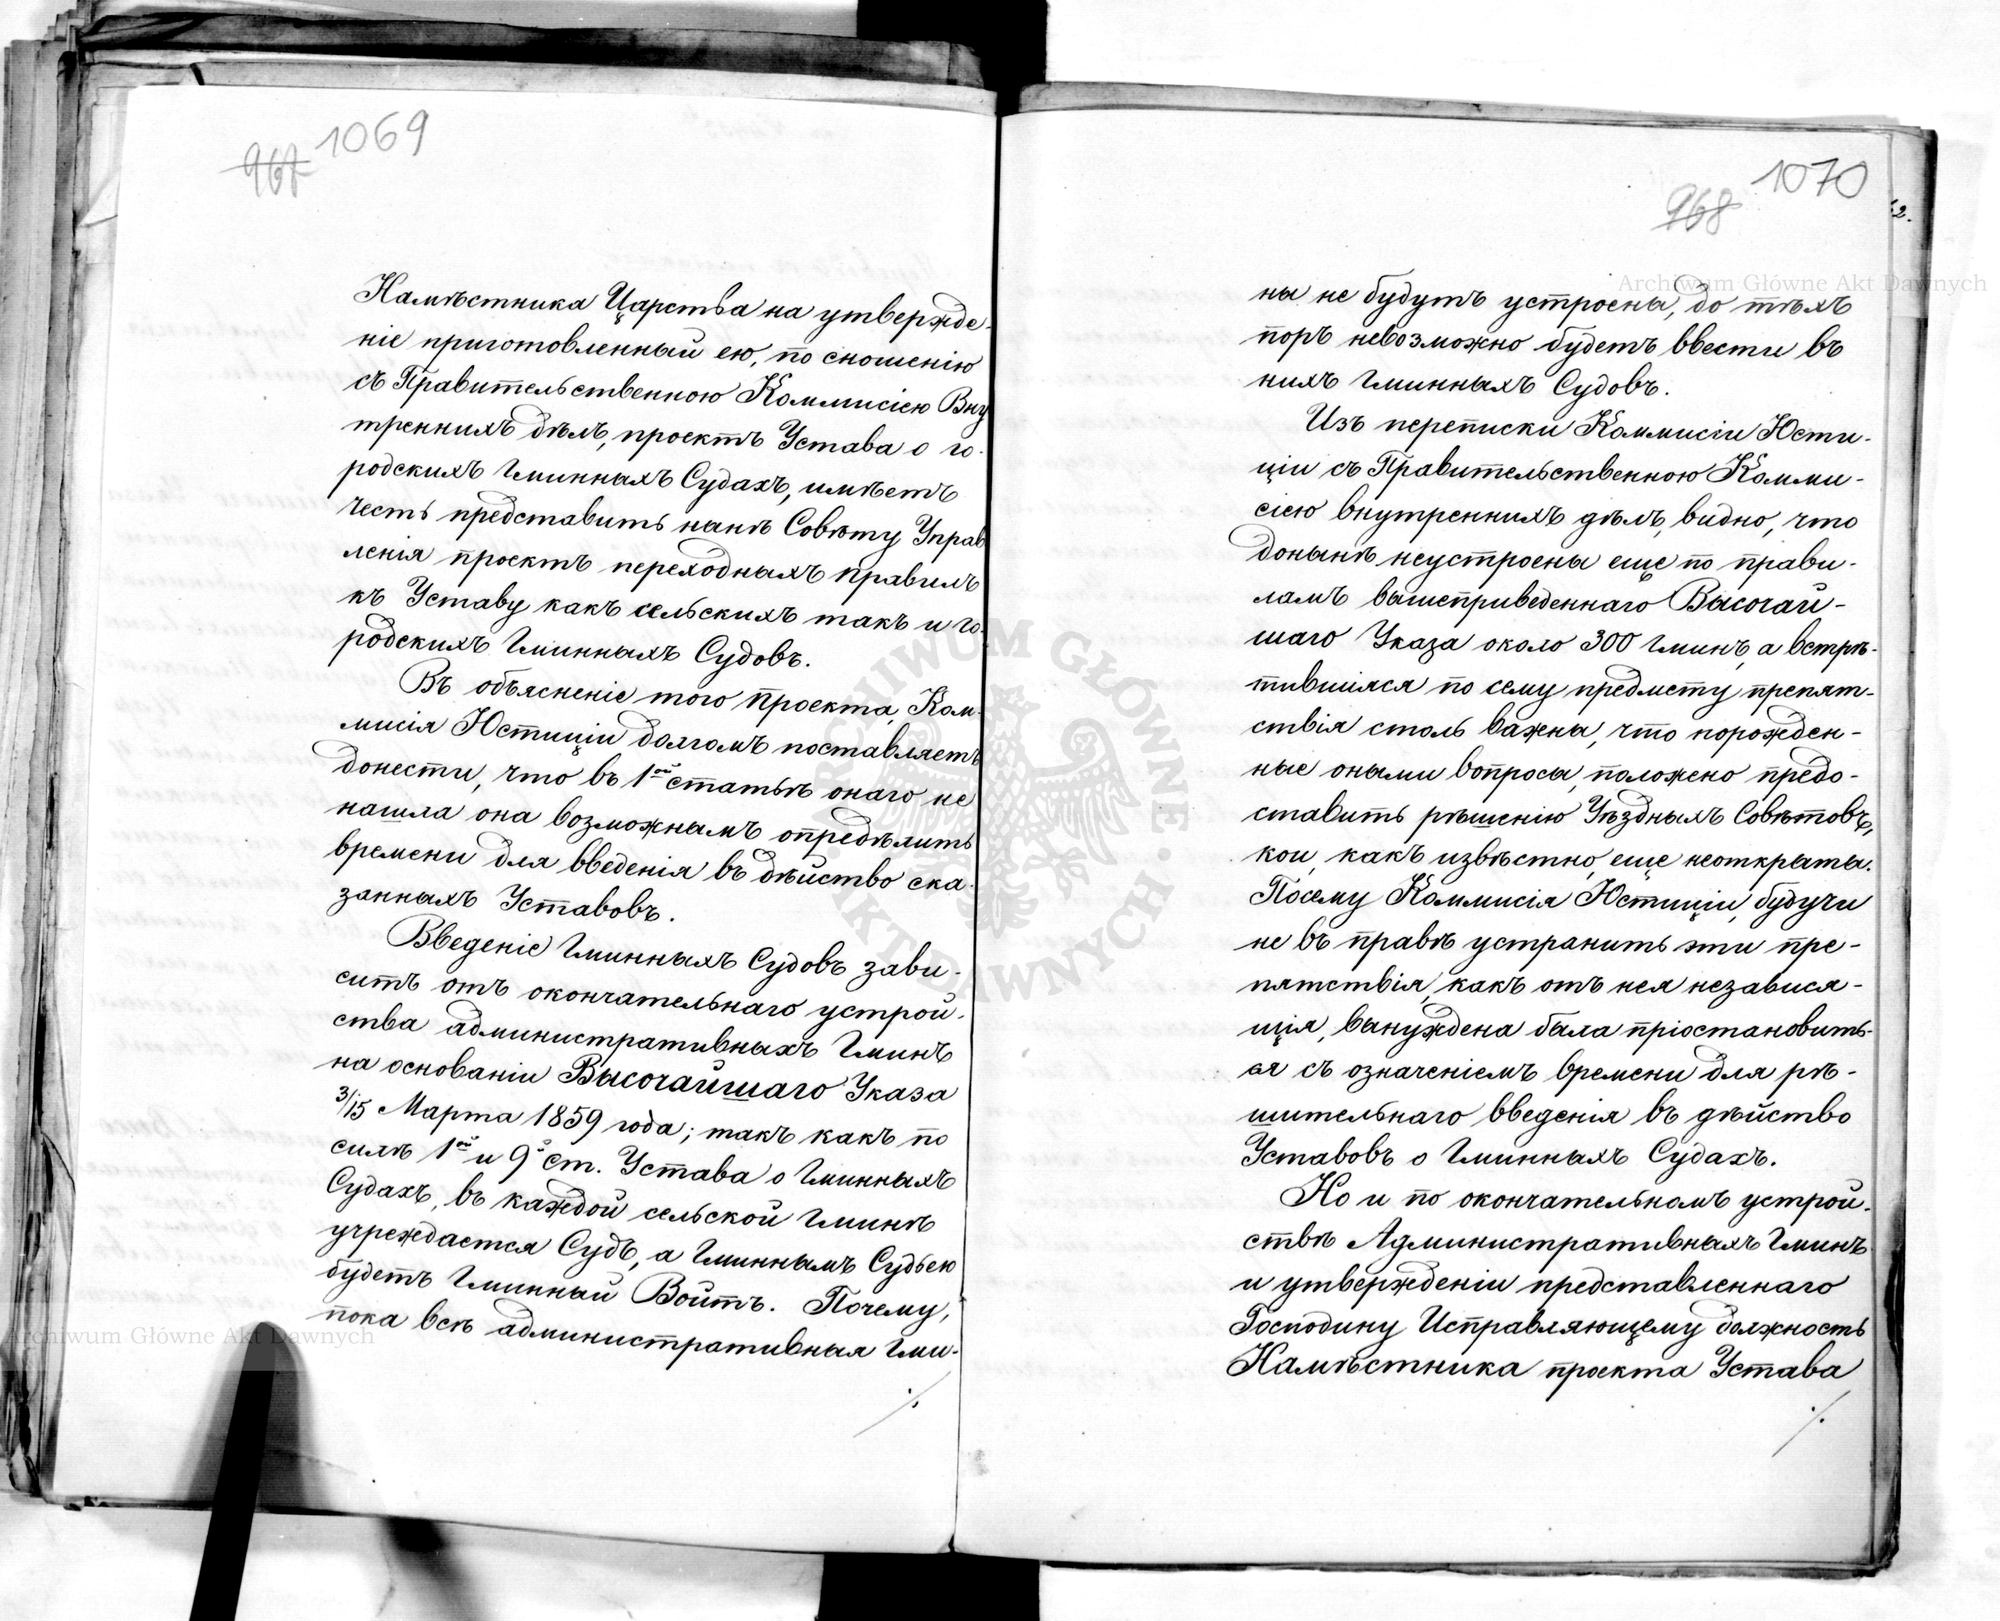 967 1069
Намѣстника Царства на утвержде-
ніе приготовленный ею, по сношенію
съ Правительственною Коммисіею Вну
треннихъ дѣлъ, проектъ Устава о го-
родскихъ Гминныхъ Судахъ, имѣетъ
честь представить нынѣ Совѣту Управ
ленія проектъ переходныхъ правилъ
къ Уставу какъ сельскихъ такъ и го-
родскихъ Гминныхъ Судовъ.
Въ объясненіе того проекта, Ком-
мисія Юстиціи долгомъ поставляетъ
донести, что въ 1ой статьѣ онаго не
нашла она возможнымъ опредѣлить
времени для введенія въ дѣйство ска-
занныхъ Уставовъ.
Введеніе Гминныхъ Судовъ зави-
ситъ отъ окончательнаго устрой-
ства административныхъ Гминъ
на основаніи Высочайшаго Указа
3/15 Марта 1859 года; такъ какъ по
силѣ 1ой и 9й ст. Устава о Гминныхъ
Судахъ, въ каждой сельской Гминѣ
учреждается Судъ, а Гминнымъ Судьею
будетъ Гминный Войтъ. Почему,
пока всѣ административныя Гми-
./.
1070
968
ны не будутъ устроены, до тѣхъ
поръ невозможно будетъ ввести въ
нихъ Гминныхъ Судовъ.
Изъ переписки Коммисіи Юсти-
ціи съ Правительственною Комми-
сіею внутреннихъ дѣлъ, видно, что
донынѣ неустроены еще по прави-
ламъ вышеприведеннаго Высочай-
шаго Указа около 300 Гминъ, а встрѣ-
тившіяся по сему предмету препят-
ствія столь важны, что порожден-
ные оными вопросы, положено предо-
ставить рѣшенію Уѣздныхъ Совѣтовъ,
кои, какъ извѣстно, еще неоткрыты.
Посему Коммисія Юстиціи, будучи
не въ правѣ устранить эти пре-
пятствія, какъ отъ нея независя-
щія, вынуждена была пріостановить-
ся съ означеніемъ времени для рѣ-
шительнаго введенія въ дѣйство
Уставовъ о Гминныхъ Судахъ.
Но и по окончательномъ устрой-
ствѣ Административныхъ Гминъ
и утвержденіи представленнаго
Господину Исправляющему должность
Намѣстника проекта Устава
./.
Archiwum Główne Akt Dawnych
Archiwum Główne Akt Dawnych
ARCHIWUM GŁÓWNE AKT DAWNYCH